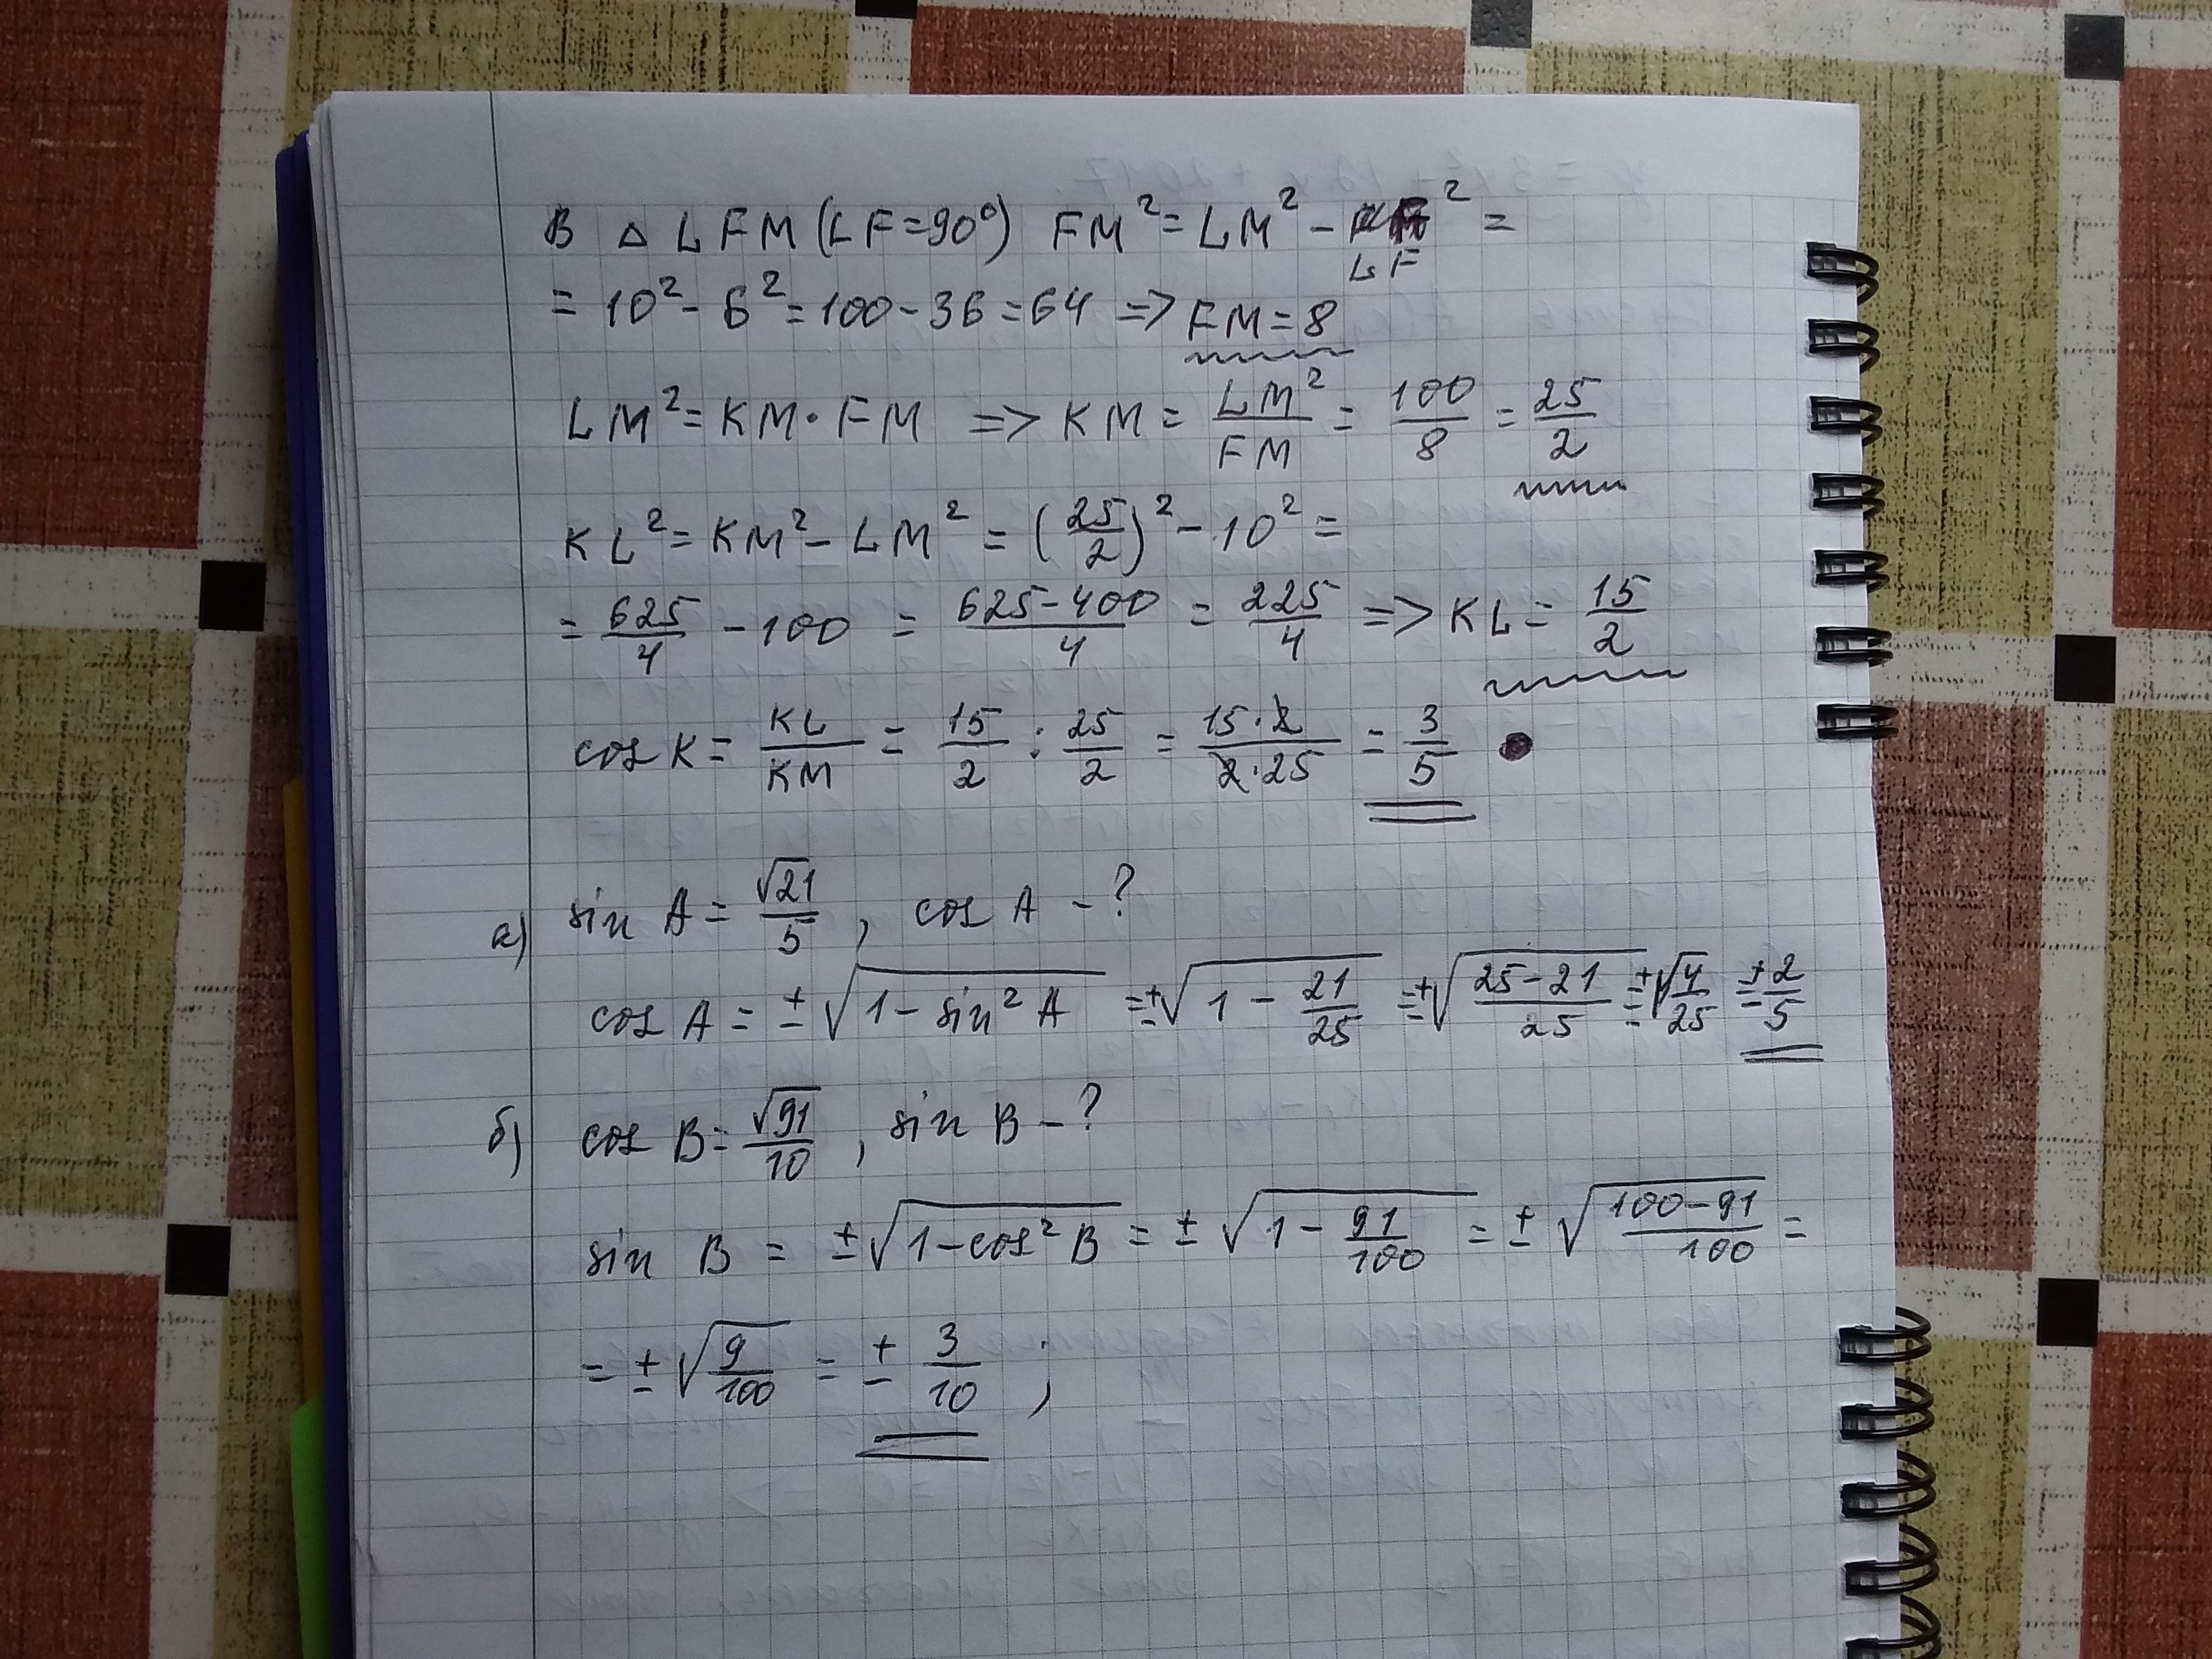 В △ LFM (∠F=90°) FM² = LM² - LF² =
= 10² - 6² = 100 - 36 = 64 => FM = 8
LM² = KM · FM => KM = LM²/FM = 100/8 = 25/2
KL² = KM² - LM² = (25/2)² - 10² =
= 625/4 - 100 = (625-400)/4 = 225/4 => KL = 15/2
cos K = KL/KM = 15/2 : 25/2 = (15·2)/(2·25) = 3/5
а) sin A = √21/5, cos A - ?
cos A = ±√(1 - sin² A) = ±√(1 - 21/25) = ±√((25-21)/25) = ±√(4/25) = ±2/5
б) cos B = √91/10, sin B - ?
sin B = ±√(1-cos² B) = ±√(1 - 91/100) = ±√((100-91)/100) =
= ±√(9/100) = ±3/10 ;